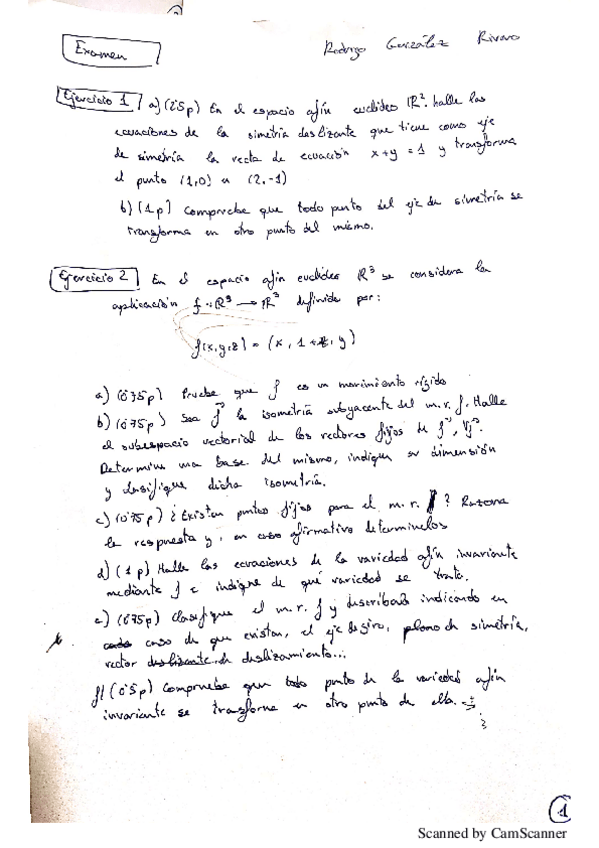 Examen
Rodrigo González Rivaro
Ejercicio 1 a) (2'5p) En el espacio afín euclídeo IR². halle las
ecuaciones de la simetría deslizante que tiene como eje
de simetría la recta de ecuación x+y=1 y transforma
el punto (1,0) a (2,-1)
b) (1p) Compruebe que todo punto del eje de simetría se
transforma en otro punto del mismo.
Ejercicio 2 En el espacio afín euclídeo IR³ se considera la
aplicación f: IR³ → IR³ definida por:
f(x,y,z) = (x, 1+z, y)
a) (0'75p) Pruebe que f es un movimiento rígido
b) (0'75p) Sea f⃗ la isometría subyacente del m.r. f. Halle
el subespacio vectorial de los vectores fijos de f⃗,
Determine una base del mismo, indique su dimensión
y clasifique dicha isometría.
c) (0'75p) ¿Existen puntos fijos para el m.r. f? Razone
la respuesta y, en caso afirmativo determínelos
d) (1p) Halle las ecuaciones de la variedad afín invariante
mediante f e indique de qué variedad se trata.
e) (0'75p) Clasifique el m.r. f y descríbalo indicando en
caso de que existan, el eje de giro, plano de simetría,
vector de deslizamiento...
f) (0'5p) Compruebe que todo punto de la variedad afín
invariante se transforma en otro punto de ella.
1
Scanned by CamScanner